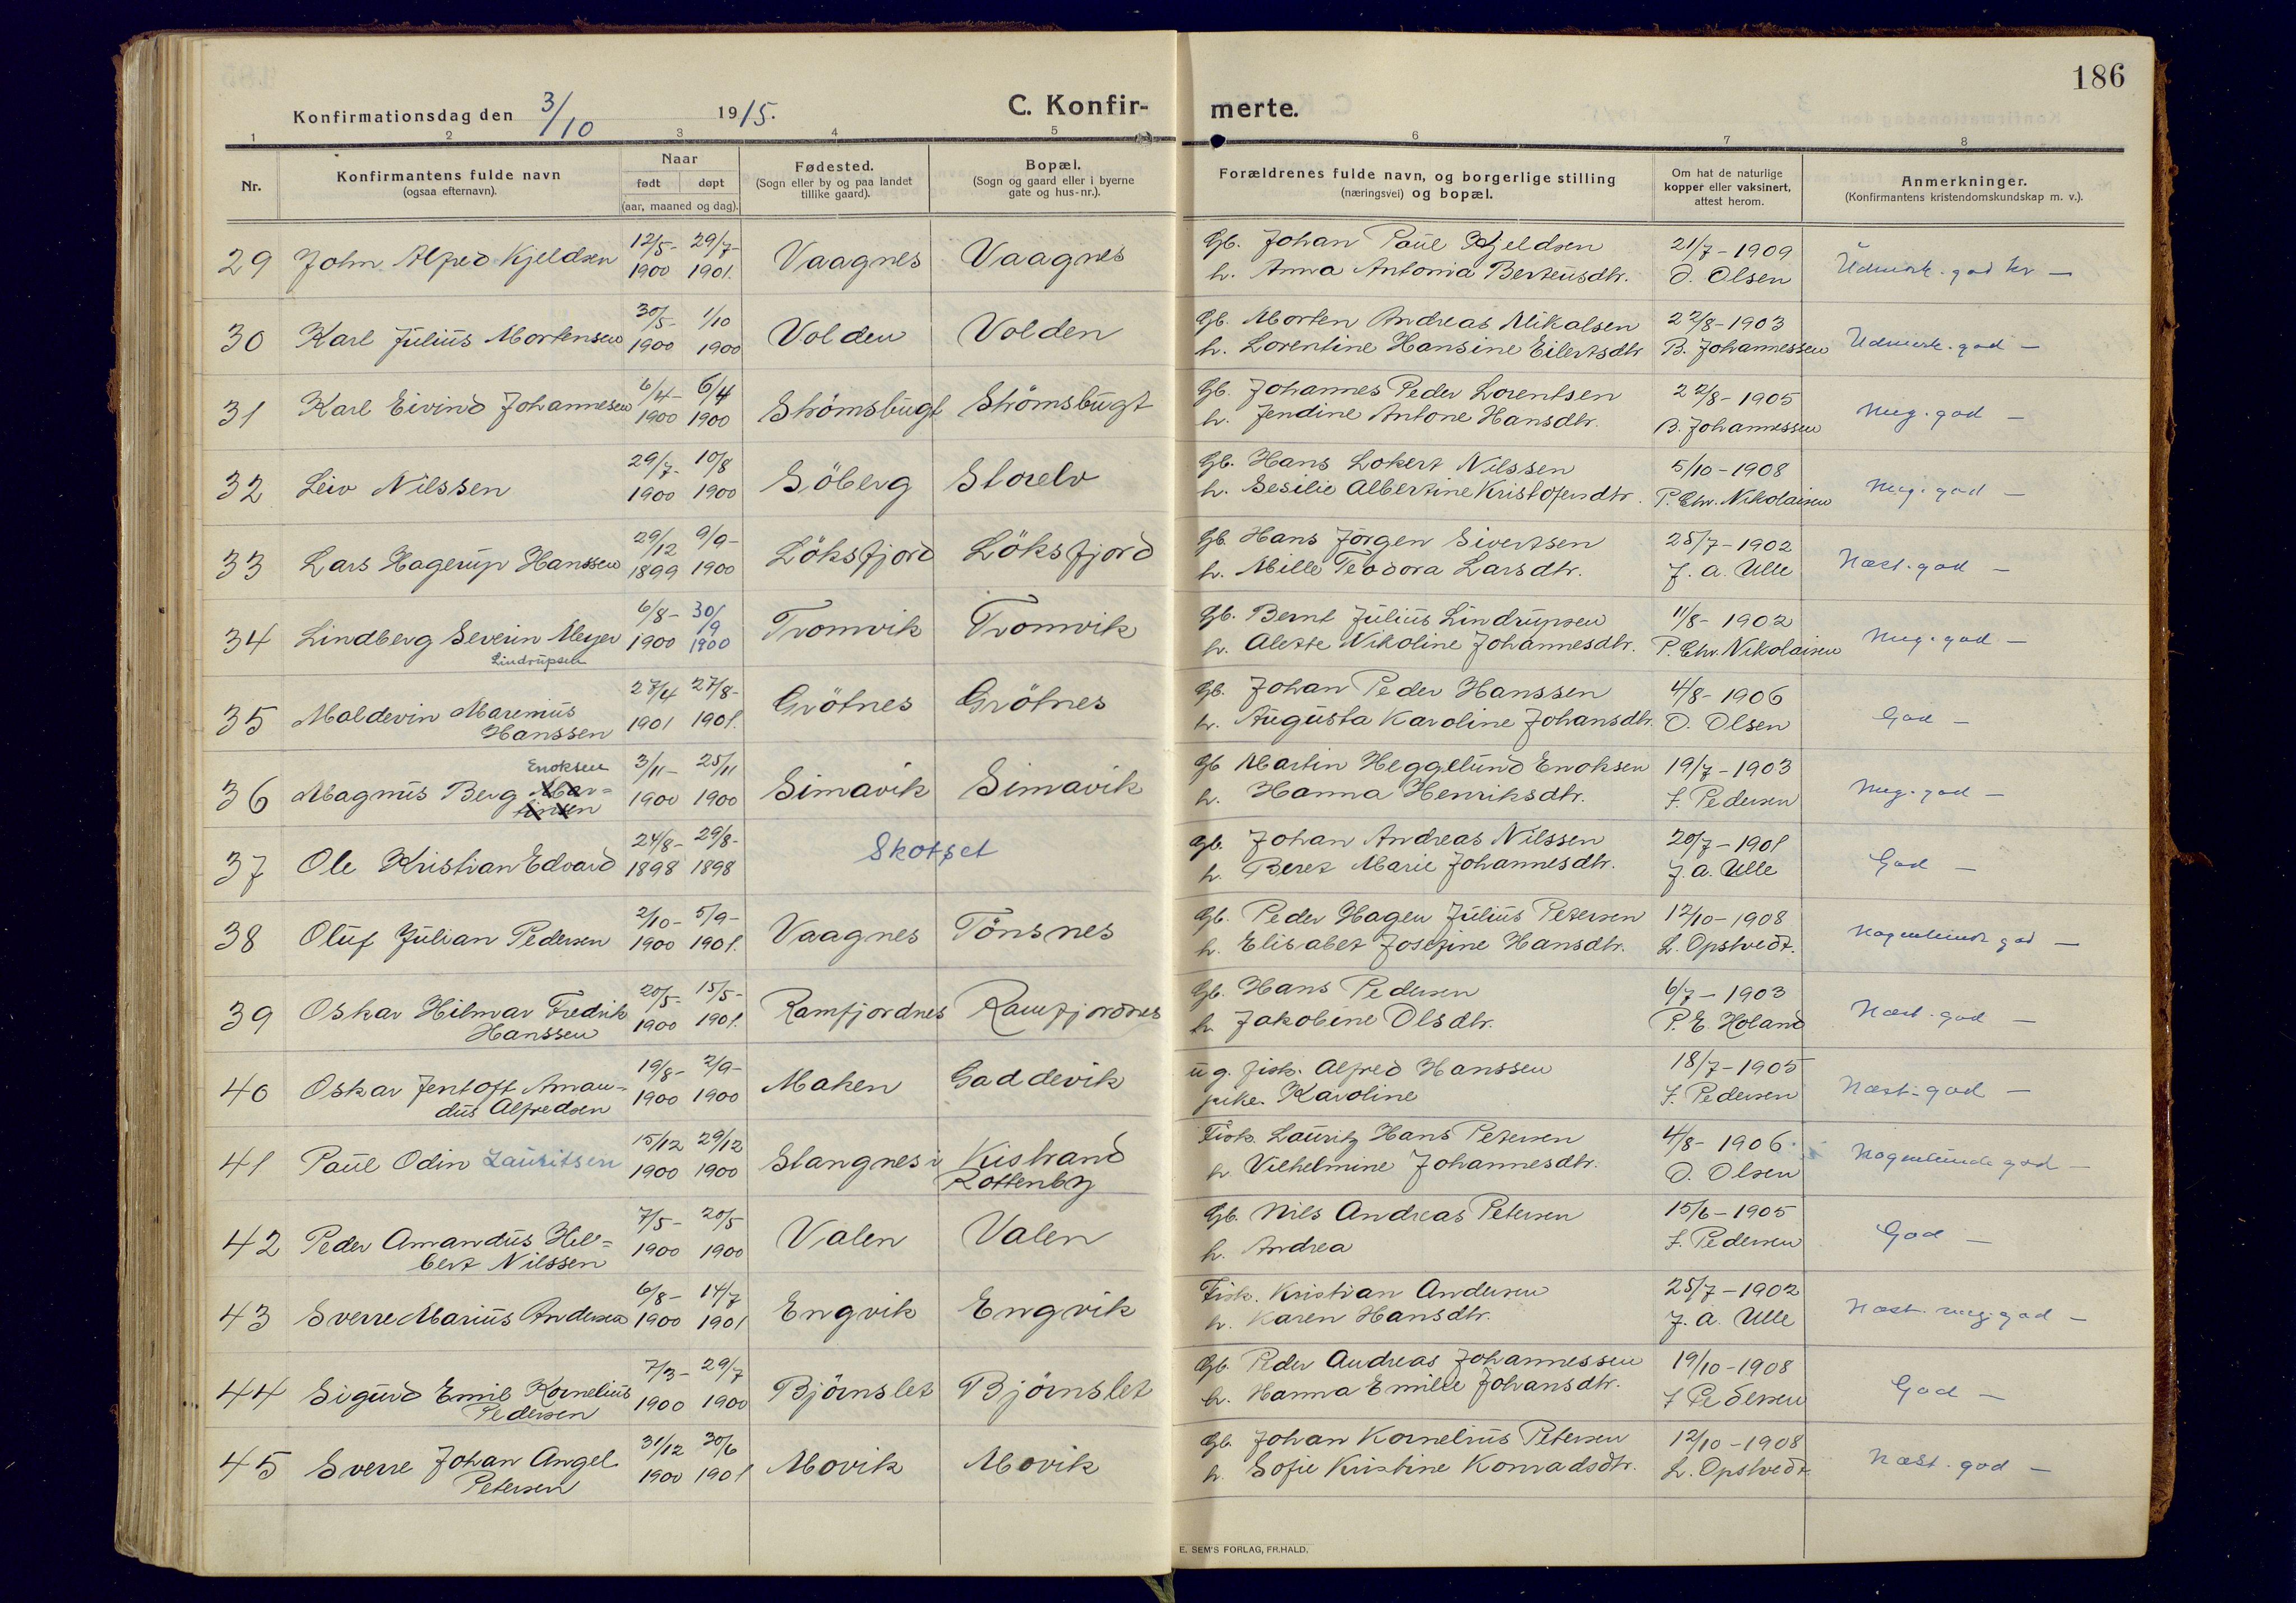 186
Konfirmationsdag den 3/10 1915. C. Konfir- merte.
1 2 3 4 5 6 7 8
Nr.
Konfirmantens fulde navn
(ogsaa efternavn).
Naar
født døpt
(aar, maaned og dag).
Fødested.
(Sogn eller by og paa landet
tillike gaard).
Bopæl.
(Sogn og gaard eller i byerne
gate og hus-nr.).
Forældrenes fulde navn, og borgerlige stilling
(næringsvei) og bopæl.
Om hat de naturlige
kopper eller vaksinert,
attest herom.
Anmerkninger.
(Konfirmantens kristendomskundskap m. v.).
12/5- 29/7- Gb. Johan Paul Kjeldsen 21/7-1909
29 John Alfred Kjeldsen 1900 1901. Vaagnes Vaagnes h. Anna Antonia Berteusdtr. O. Olsen Udmerk. god
30/5- 1/10 Gb. Morten Andreas Mikalsen 22/8-1903
30 Karl Julius Mortensen 1900 1900 Volden Volden h. Lorentine Hansine Eilertsdtr B. Johannessen Udmerk. god -
6/4- 6/4 Gb. Johannes Peder Lorentsen 22/8-1905
31 Karl Eivind Johannesen 1900 1900 Strömsbugt Strömsbugt h. Jendine Antone Hansdtr. B. Johannessen Meg. god -
29/7- 10/8 Gb. Hans Lokert Nilssen 5/10-1908
32 Leiv Nilssen 1900 1900 Söberg Storelv h. Sesilie Albertine Kristofersdtr. P. Chr. Nikolaisen Meg. god -
29/12 9/9- Gb. Hans Jörgen Sivertsen 25/7-1902
33 Lars Hagerup Hanssen 1899 1900 Löksfjord Löksfjord h. Mille Teodora Larsdtr. J. A. Ulle Næst. god -
6/8- 30/9 Gb. Bernt Julius Lindrupsen 11/8-1902
34 Lindberg Severin Meyer 1900 1900 Tromvik Tromvik h. Alette Nikoline Johannesdtr. P. Chr. Nikolaisen Meg. god -
Lindrupsen
27/4 27/8- Gb. Johan Peder Hanssen 4/8-1906
35 Maldevin Maremius 1901 1901. Grötnes Grötnes h. Augusta Karoline Johansdtr. O. Olsen God -
Hanssen
Enoksen 3/11- 25/11 Gb Martin Heggelund Enoksen 19/7-1903
36 Magnus Berg Mar- 1900 1900 Simavik Simavik h. Hanna Henriksdtr. J. Pedersen Meg. god -
tinsen
24/8- 29/8- Gb. Johan Andreas Nilssen 20/7-1901
37 Ole Kristian Edvard 1898 1898 Skotset h. Beret Marie Johannesdtr. J. A. Ulle God -
2/10- 5/9- Gb. Peder Hagen Julius Petersen 12/10-1908
38 Oluf Julian Pedersen 1900 1901. Vaagnes Tönsnes h. Elisabet Josefine Hansdtr. L. Opstvedt. Nogenlunde god -
20/5- 15/5- Gb. Hans Pedersen 6/7-1903
39 Oskar Hilmar Fredrik 1900 1901. Ramfjordnes Ramfjordnes h. Jakobine Olsdtr. P. E. Holand Næst. god -
Hanssen
19/8- 2/9- ug. fisk. Alfred Hanssen 18/7-1905
40 Oskar Jentoft Aman- 1900 1900 Maken Gaddevik pike. Karoline J. Pedersen Næst. god -
dus Alfredsen
15/12 29/12 Fisk. Lauritz Hans Petersen 4/8-1906.
41 Paul Odin Lauritsen 1900 1900 Slangnes i Kistrand h Vilhelmine Johannesdtr. O. Olsen Nogenlunde god -
Rottenby
7/5- 20/5 Gb. Nils Andreas Petersen 15/6-1905
42 Peder Amandus Hil- 1900 1900 Valen Valen h. Andrea J. Pedersen God -
bert Nilssen
6/8- 14/7 Fisk. Kristian Andersen 25/7-1902
43 Sverre Marius Andersen 1900 1901 Engvik Engvik h. Karen Hansdtr. J. A. Ulle Næst. meg. god -
7/3- 29/7 Gb. Peder Andreas Johannessen 19/10-1908
44 Sigurd Emil Kornelius 1900 1900 Björnslet Björnslet h. Hanna Emilie Johansdtr. J Pedersen God -
Pedersen
31/12 30/6 Gb. Johan Kornelius Petersen 12/10-1908
45 Sverre Johan Angel 1900 1901 Movik Movik h. Sofie Kristine Konradsdtr. L. Opstvedt. Næst. god -
Petersen
E. SEM'S FORLAG, FR.HALD.